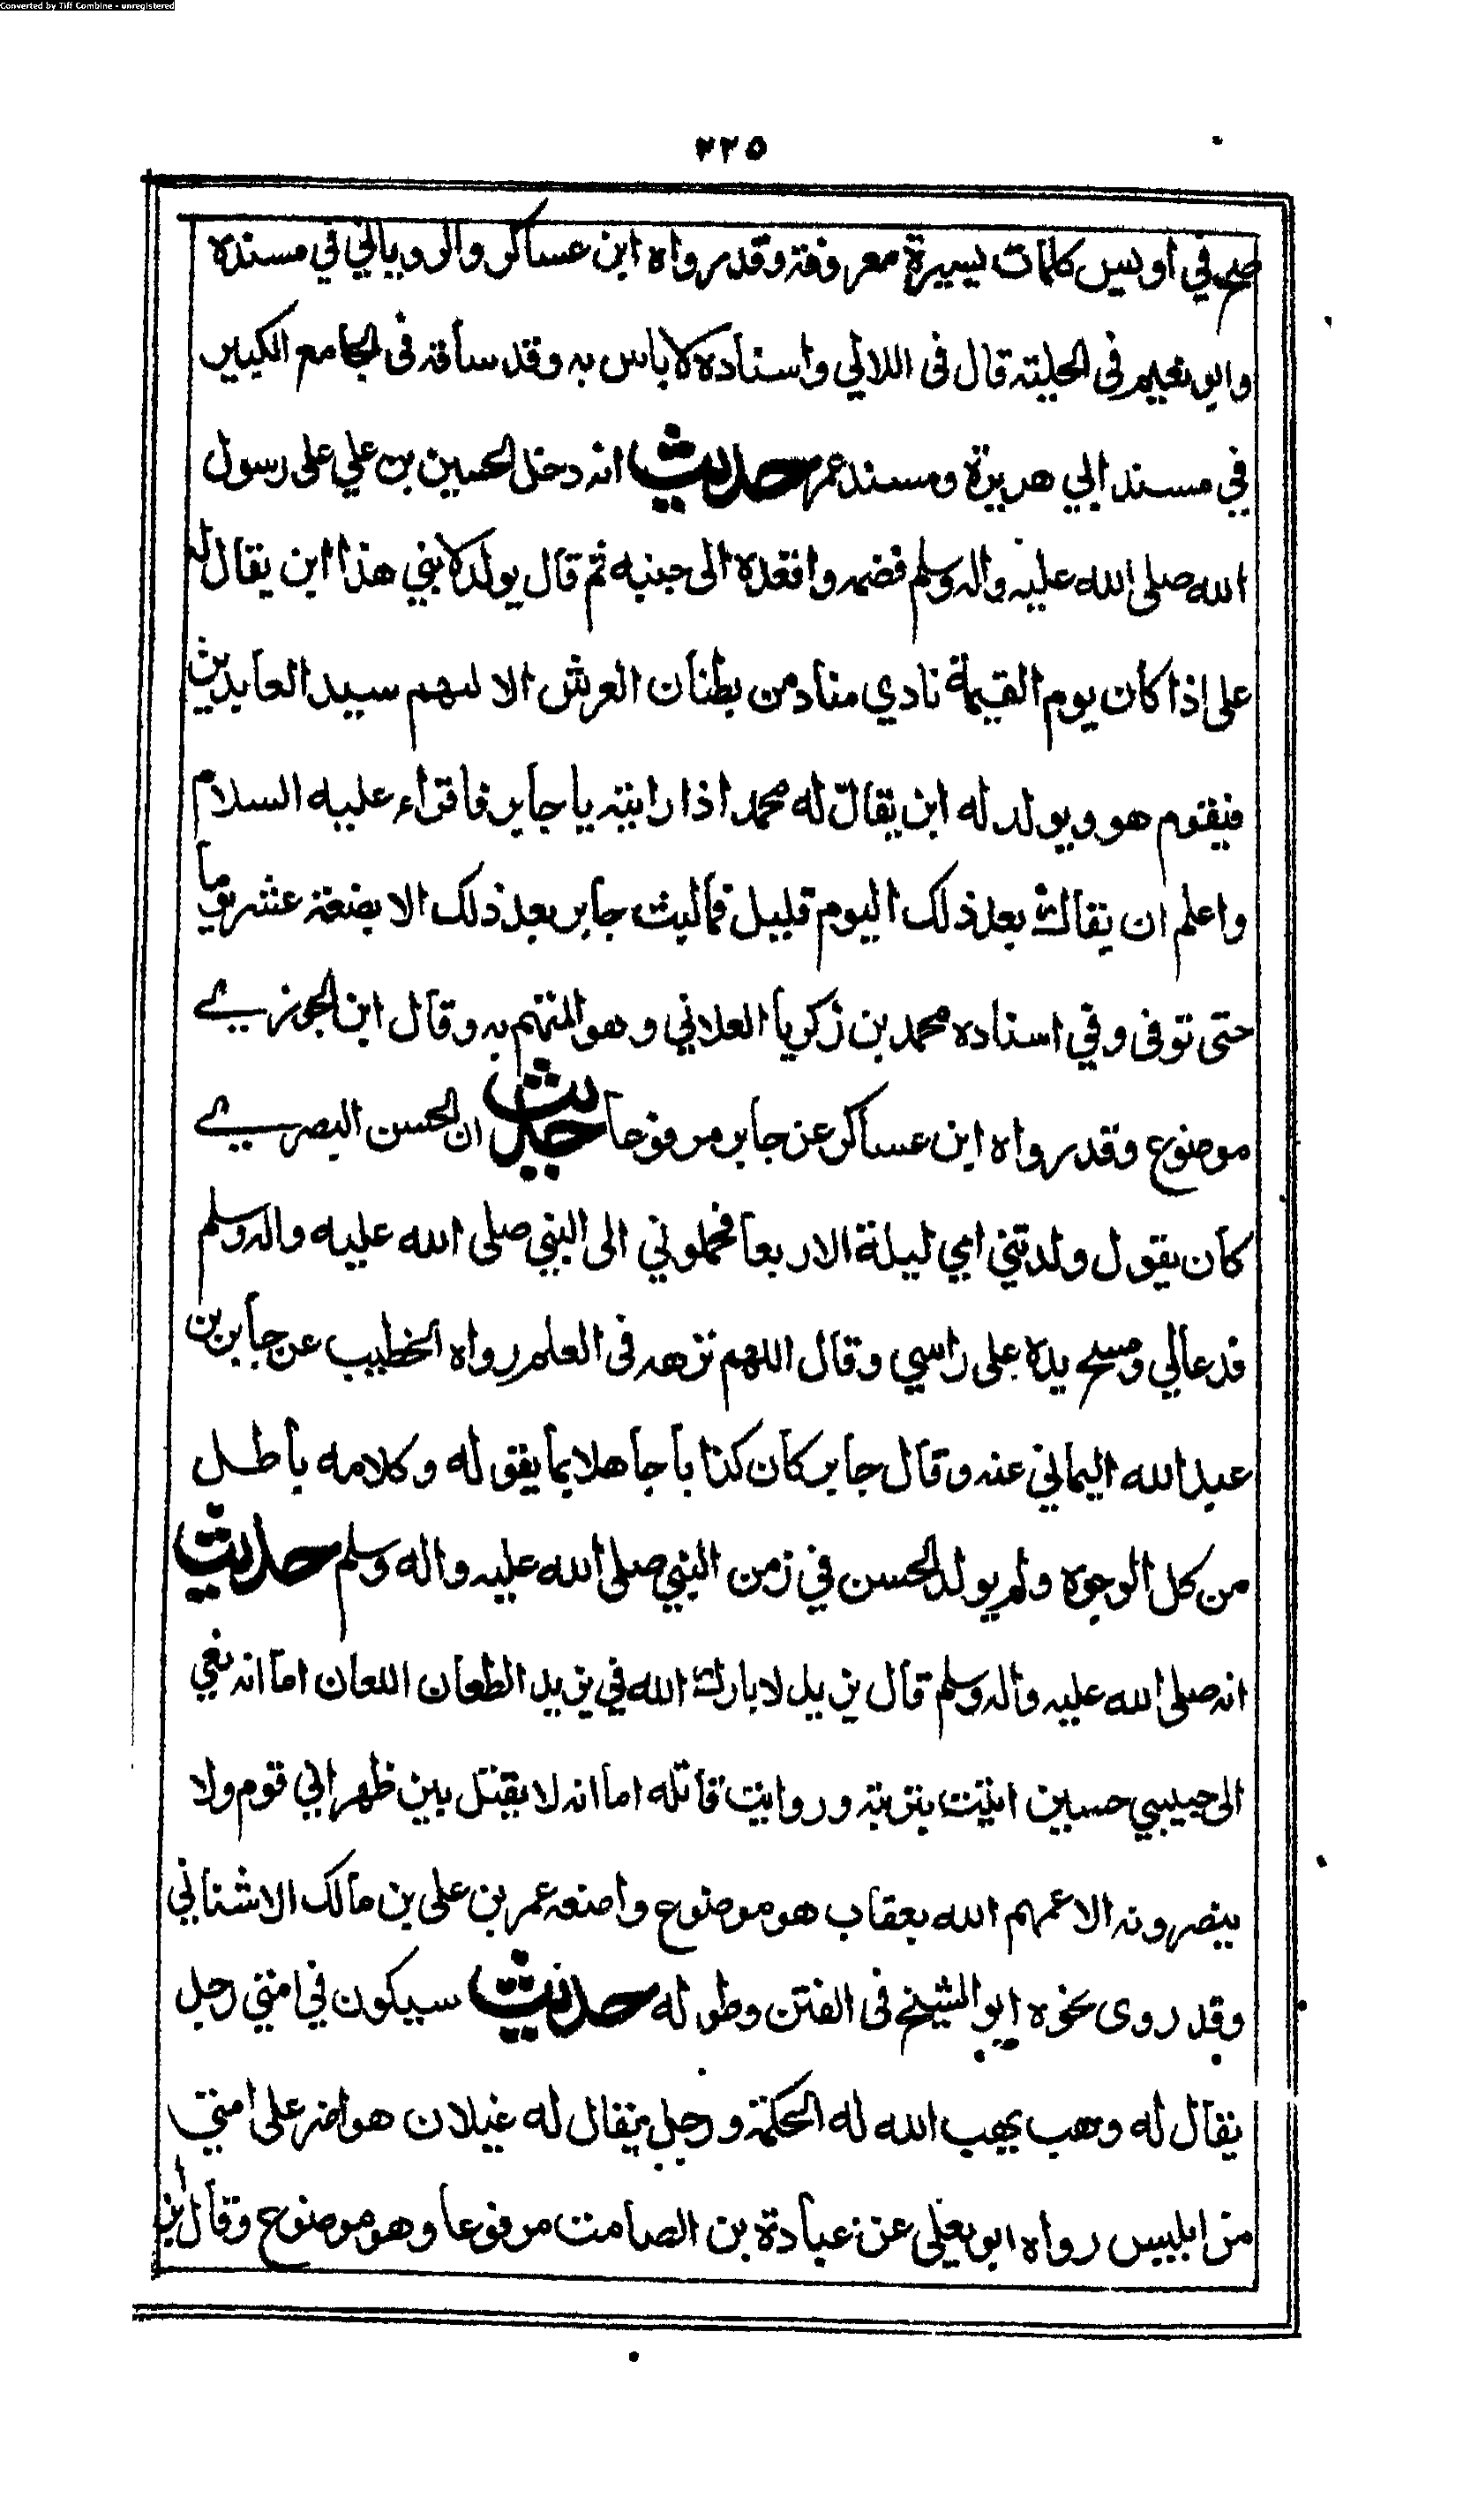 Converted by Tiff Combine - unregistered
٢٢٥
صح في اويس كلمات يسيرة معروفة وقد رواه ابن عساكر والروياني في مسنده
وابو نعيم في الحلية قال في اللالي واسناده لا باس به وقد ساقه في الجامع الكبير
في مسند ابي هريرة ومسند عمر حديث انه دخل الحسين بن علي على رسول
الله صلى الله عليه واله وسلم فضمه واقعده الى جنبه ثم قال يولد لابني هذا ابن يقال له
على اذا كان يوم القيمة نادي مناد من بطنان العرش الا ليهم سيد العابدين
فيقوم هو ويولد له ابن يقال له محمد اذا رايته يا جابر فاقراء عليه السلام
واعلم ان بقاك بعد ذلك اليوم قليل فما لبث جابر بعد ذلك الا بضعة عشر يوما
حتى توفى وفي اسناده محمد بن زكريا العلاني وهو المتهم به وقال ابن الجوزي
موضوع وقد رواه ابن عساكر عن جابر مرفوعا حديث ان الحسن البصري
كان يقول ولدتني امي ليلة الاربعا فحملوني الى النبي صلى الله عليه واله وسلم
فدعا لي ومسح يده على راسي وقال اللهم نزهه في العلم رواه الخطيب عن جابر بن
عبد الله اليماني عنه وقال جابر كان كذابا جاهلا بما يقوله وكلامه باطل
من كل الوجوه ولم يولد الحسن في زمن النبي صلى الله عليه واله وسلم حديث
انه صلى الله عليه واله وسلم قال يزيد لا بارك الله في يزيد الطعان اللعان اما انه نعي
الى حبيبي حسين اتيت بتربته وروايت قاتله اما انه لا يقتل بين ظهراني قوم ولا
ينصرونه الا عمهم الله بعقاب هو موضوع واضعه عمر بن على بن مالك الاشناني
وقد روى نحوه ابو الشيخ في الفتن وطوله حديث سيكون في امتي رجل
يقال له وهب يهب الله له الحكمة ورجل يقال له غيلان هو اضر على امتي
من ابليس رواه ابو يعلى عن عبادة بن الصامت مرفوعا وهو موضوع وقال ابن